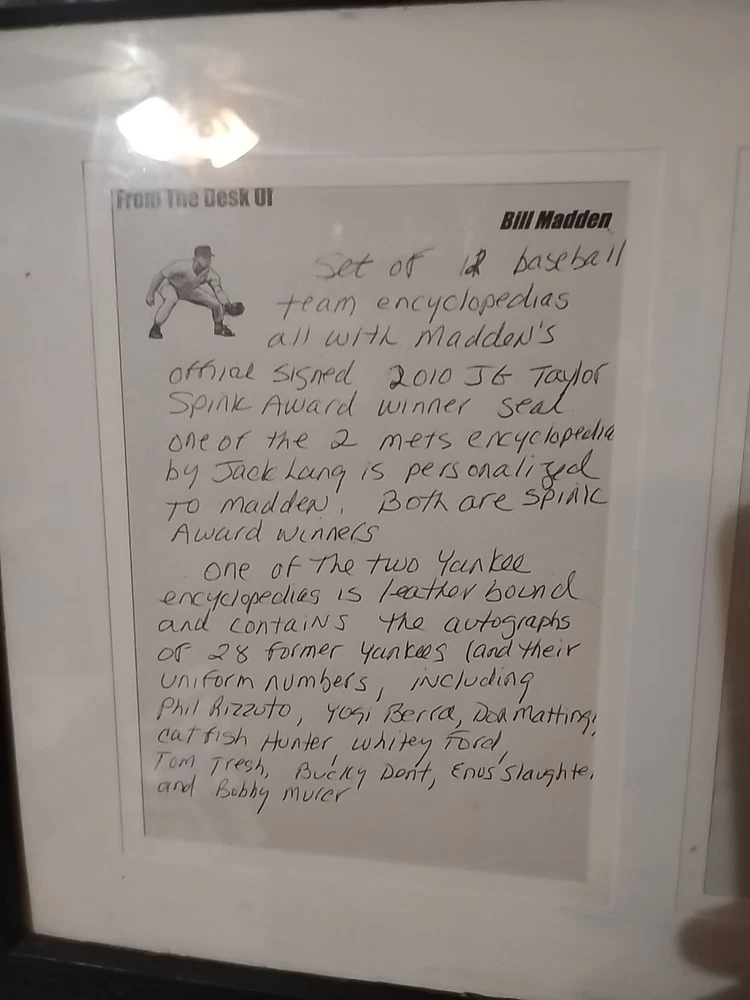 From The Desk Of
Bill Madden
Set of 12 baseball
team encyclopedias
all with Madden's
official signed 2010 JG Taylor
Spink Award winner seal
one of the 2 mets encyclopedia
by Jack Lang is personalized
to madden. Both are Spink
Award winners
one of the two Yankee
encyclopedias is leather bound
and contains the autographs
of 28 former Yankees (and their
uniform numbers, including
Phil Rizzuto, Yogi Berra, Don Mattingl
catfish Hunter, Whitey Ford,
Tom Tresh, Bucky Dent, Enos Slaughte
and Bobby Murcer